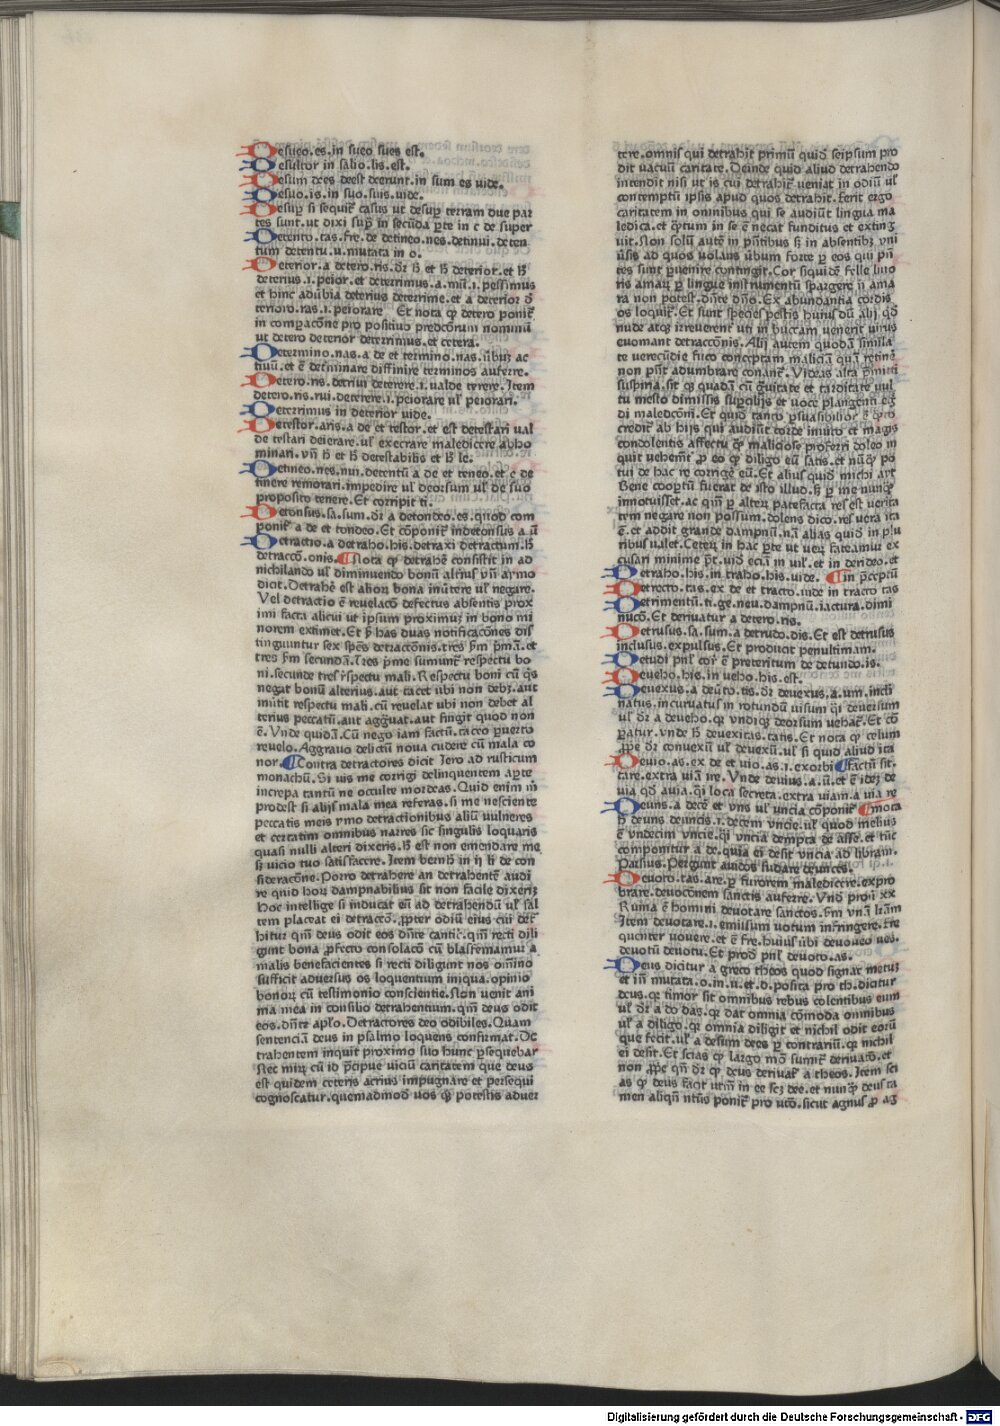 Desueo.es.in sueo sues est.
Desultor in salio.lis.est.
Desum dees deest deerunt.in sum es vide.
Desuo.is.in suo.suis.vide.
Desup̄ si sequit̄ casus ut desup̄ terram due par
tes sunt.ut dixi sup̄ in secūda p̄te in c de super
Detento.tas.fre.de detineo.nes.detinui.deten
tum detentu.u.mutata in o.
Deterior.a detero.ris.dr̄ h̄ et h̄ deterior.et h̄
deterius.i.peior.et deterrimus.a.mū.i.pessimus
et hinc adūbia deterius deterrime.et a deterior d̄
terioro.ras.i.peiorare Et nota ꝙ detero ponit̄
in comp̄acōne pro positiuo predcōrum nominū
ut detero deterior deterrimus.et cetera.
Determino.nas.a de et termino.nas.ūbuꝫ ac
tiuū.et ē det̄minare diffinire terminos auferre.
Detero.ris.detriui deterere.i.ualde terere. Item
detero.ris.rui.deterere.i.peiorare ul̄ peiorari.
Deterrimus in deterior vide.
Detestor.aris.a de et testor.et est detestari ual
de testari deierare.ul̄ execrare maledicere abho
minari.vn̄ h̄ et h̄ detestabilis et h̄ le.
Detineo.nes.nui.detentū a de et teneo.et ē de
tinere remorari.impedire ul̄ deorsum ul̄ de suo
proposito tenere.Et corripit ti.
Detonsus.sa.sum.dr̄ a detondeo.es.quod com
ponit̄ a de et tondeo.Et cōponit̄ indetonsus a ū
Detractio.a detraho.his.detraxi detractum.h̄
detraccō.onis. Nota ꝙ detrahē consistit in ad
nichilando ul̄ diminuendo bonū alt̄ius vn̄ aymo
dicit.Detrahē est alioꝝ bona inūtere ul̄ negare.
Vel detractio ē reuelacō defectus absentis prox
imi facta alicui ut ipsum proximuꝫ in bono mi
norem extimet.Et p̄ has duas notificacōnes dis
tinguuntur sex sp̄es detractōnis.tres s̄m p̄mā.et
tres s̄m secundā.Tres p̄me sumunt̄ respectu bo
ni.secunde tres r̄spectu mali.Respectu boni cū q̄s
negat bonū alterius.aut tacet ubi non debꝫ.aut
mūtit respectu mali.cū reuelat ubi non debet al
terius peccatū.aut agg̃uat.aut fingit quod non
ē.Vnde quidā.Cū nego iam factū.taceo p̄uerto
reuelo.Aggrauo delictū noua cudere cū mala co
nor. Contra detractores dicit Jero ad rusticum
monachū.Si uis me corrigi delinquentem ap̄te
increpa tantū ne occulte mordeas.Quid enim m̄
prodest si alijs mala mea referas.si me nesciente
peccatis meis ymo detractionibus aliū vulneres
et certatim omnibus narres sic singulis loquaris
quasi nulli alteri dixeris.h̄ est non emendare me
sꝫ vicio tuo satisfacere.Item bernh̄ in ij li de con
sideracōne.Porro detrahere an detrahentē audi
re quid hoꝝ dampnabilius sit non facile dixerīꝫ
Hoc intellige si inducat eū ad detrahendū ul̄ sal
tem placeat ei detraccō.p̄pter odiū eius cui det̄
hitur qm̄ deus odit eos dn̄te cantic̄.qm̄ recti dili
gunt bona p̄fecto consolacō cū blasfemamur a
malis benefacientes si recti diligunt nos om̄ino
sufficit aduersus os loquentium iniqua.opinio
bonoꝝ cū testimonio conscientie.Non venit ani
ma mea in consilio detrahentium.qm̄ deus odit
eos.dn̄te ap̄lo.Detractores deo odibiles.Quam
sentenciā deus in psalmo loquens confirmat.De
trahentem inquit proximo suo hunc p̄sequebar
Nec miꝝ cū id p̄cipue viciū caritatem que deus
est quidem ceteris acrius impugnare et persequi
cognoscatur.quemadmod vos ꝙ potestis aduer
tere.omnis qui detrahit primū quid seipsum pro
dit vacuū caritate.Deinde quid aliud detrahendo
intendit nisi ut is cui detrahit̄ veniat in odiū ul̄
contemptū ipsis apud quos detrahit.Ferit ergo
caritatem in omnibus qui se audiūt lingua ma
ledica.et q̄ntum in se ē necat funditus et exting̃
uit.Non solū autē in p̄ntibus sꝫ in absentibꝫ vni
ūsis ad quos volans ūbum forte p̄ eos qui p̄n
tes sunt p̄uenire contingit.Cor siquidē felle liuo
ris amaꝝ p̄ lingue instrumentū spargere ij ama
ra non potest.dn̄te dn̄o.Ex abundantia cordis
os loquit̄.Et sunt species pestis huius dū alij qd̄
nude atqꝫ irreuerent̄ uti in buccam venerit virus
euomant detraccōnis.Alij autem quodā simila
te verecūdie fuco conceptam maliciā quā retinē
non p̄n̄t adumbrare conant̄.Videas alta p̄mitti
suspiria.sit qꝫ quadā cū g̃uitate et tarditate vul
tu mesto dimissis supcilijs et uoce plangenti eg̃
di maledcōni.Et quid tanto p̄suasibilior ē q̄nto
credit̄ ab hijs qui audiūt corde inuito et magis
condolentis affectu ꝙ maliciose proferri doleo in
quit vehemēt̄ p̄ eo ꝙ diligo eū satis.et nūqꝫ po
tui de hac re corrigē eū.Et alius quid michi ayt
Bene coop̄tū fuerat de isto illud.sꝫ p̄ me nunqꝫ
innotuisset.ac qm̄ p̄ alterꝝ patefacta res est verita
tem negare non possum.dolens dico.res vera ita
ē.et addit grande dampnū.nā alias quid in plu
ribus ualet.Ceterꝝ in hac p̄te ut verꝫ fateamur ex
cusari minime p̄t.vid eciā in vil̄.et in derideo.et
Detraho.his.in traho.his.vide. in p̄ceptū
Detrecto.tas.ex de et tracto.vide in tracto tas
Detrimentū.ti.ge.neu.dampnū.iactura.dimi
nucō.Et deriuatur a detero.ris.
Detrusus.sa.sum.a detrudo.dis.Et est detrusus
inclusus.expulsus.Et producit penultimam.
Detudi pnl̄ cor̄ ē preteritum de detundo.is.
Deueho.his.in veho.his.est.
Deuexus.a deūto.tis.dr̄ deuexus.a.um.incli
natus.incuruatus in rotundū uisum q̄i deuersum
ul̄ dr̄ a deueho.qꝛ vndiqꝫ deorsum uehat̄.Et cō
p̄atur.vnde h̄ deuexitas.tatis.Et nota ꝙ celum
p̄p̄e dr̄ conuexū ul̄ deuexū.ul̄ si quid aliud ita
Deuio.as.ex de et vio.as.i.exorbi factū sit.
tare.extra viā ire.Vnde deuius.a.ū.et ē ideꝫ de
uia qd̄ auia.q̄i loca secreta.extra viam.a via re
Deuns.a decē et vns ul̄ vncia cōponit̄ mota
h̄ deuns deuncis.i.decem vncie.ul̄ quod melius
ē vndecim vncie.q̄i vncia dempta de asse.et tūc
componitur a de.quia ei desit vncia ad libram.
Parsius.Pergunt auidos sudare deunces.
Deuoto.tas.are.p̄ furorem maledicere.expro
brare.deuocōnem sanctis auferre.Vnd̄ prou xx
Ruina ē homini deuotare sanctos.s̄m vnā lr̄am
Item deuotare.i.emissum uotum infringere.fre
quenter vouere.et ē fre.huius ūbi deuoueo ues.
deuotū deuotu.Et prod pnl̄ deuoto.as.
Deus dicitur a greco theos quod signat̄ metuꝫ
et in̄ mutata.o.in.u.et.d.posita pro th.dicitur
deus.qꝛ timor sit omnibus rebus colentibus eum
ul̄ dr̄ a do das.qꝛ dat omnia cōmoda omnibus
ul̄ a diligo.qꝛ omnia diligit et nichil odit eorū
que fecit.ul̄ a desum dees p̄ contrariū.qꝛ nichil
ei desit.Et scias ꝙ largo mō sumit̄ deriuatō.et
non p̄p̄e qn̄ dr̄ ꝙ deus deriuat̄ a theos.Item sci
as ꝙ deus facit utm̄ in ee scꝫ dee.et nunqꝫ deus ta
men aliqn̄ ntūs ponit̄ pro utō.sicut agnus p̄ ag
Digitalisierung gefördert durch die Deutsche Forschungsgemeinschaft - DFG